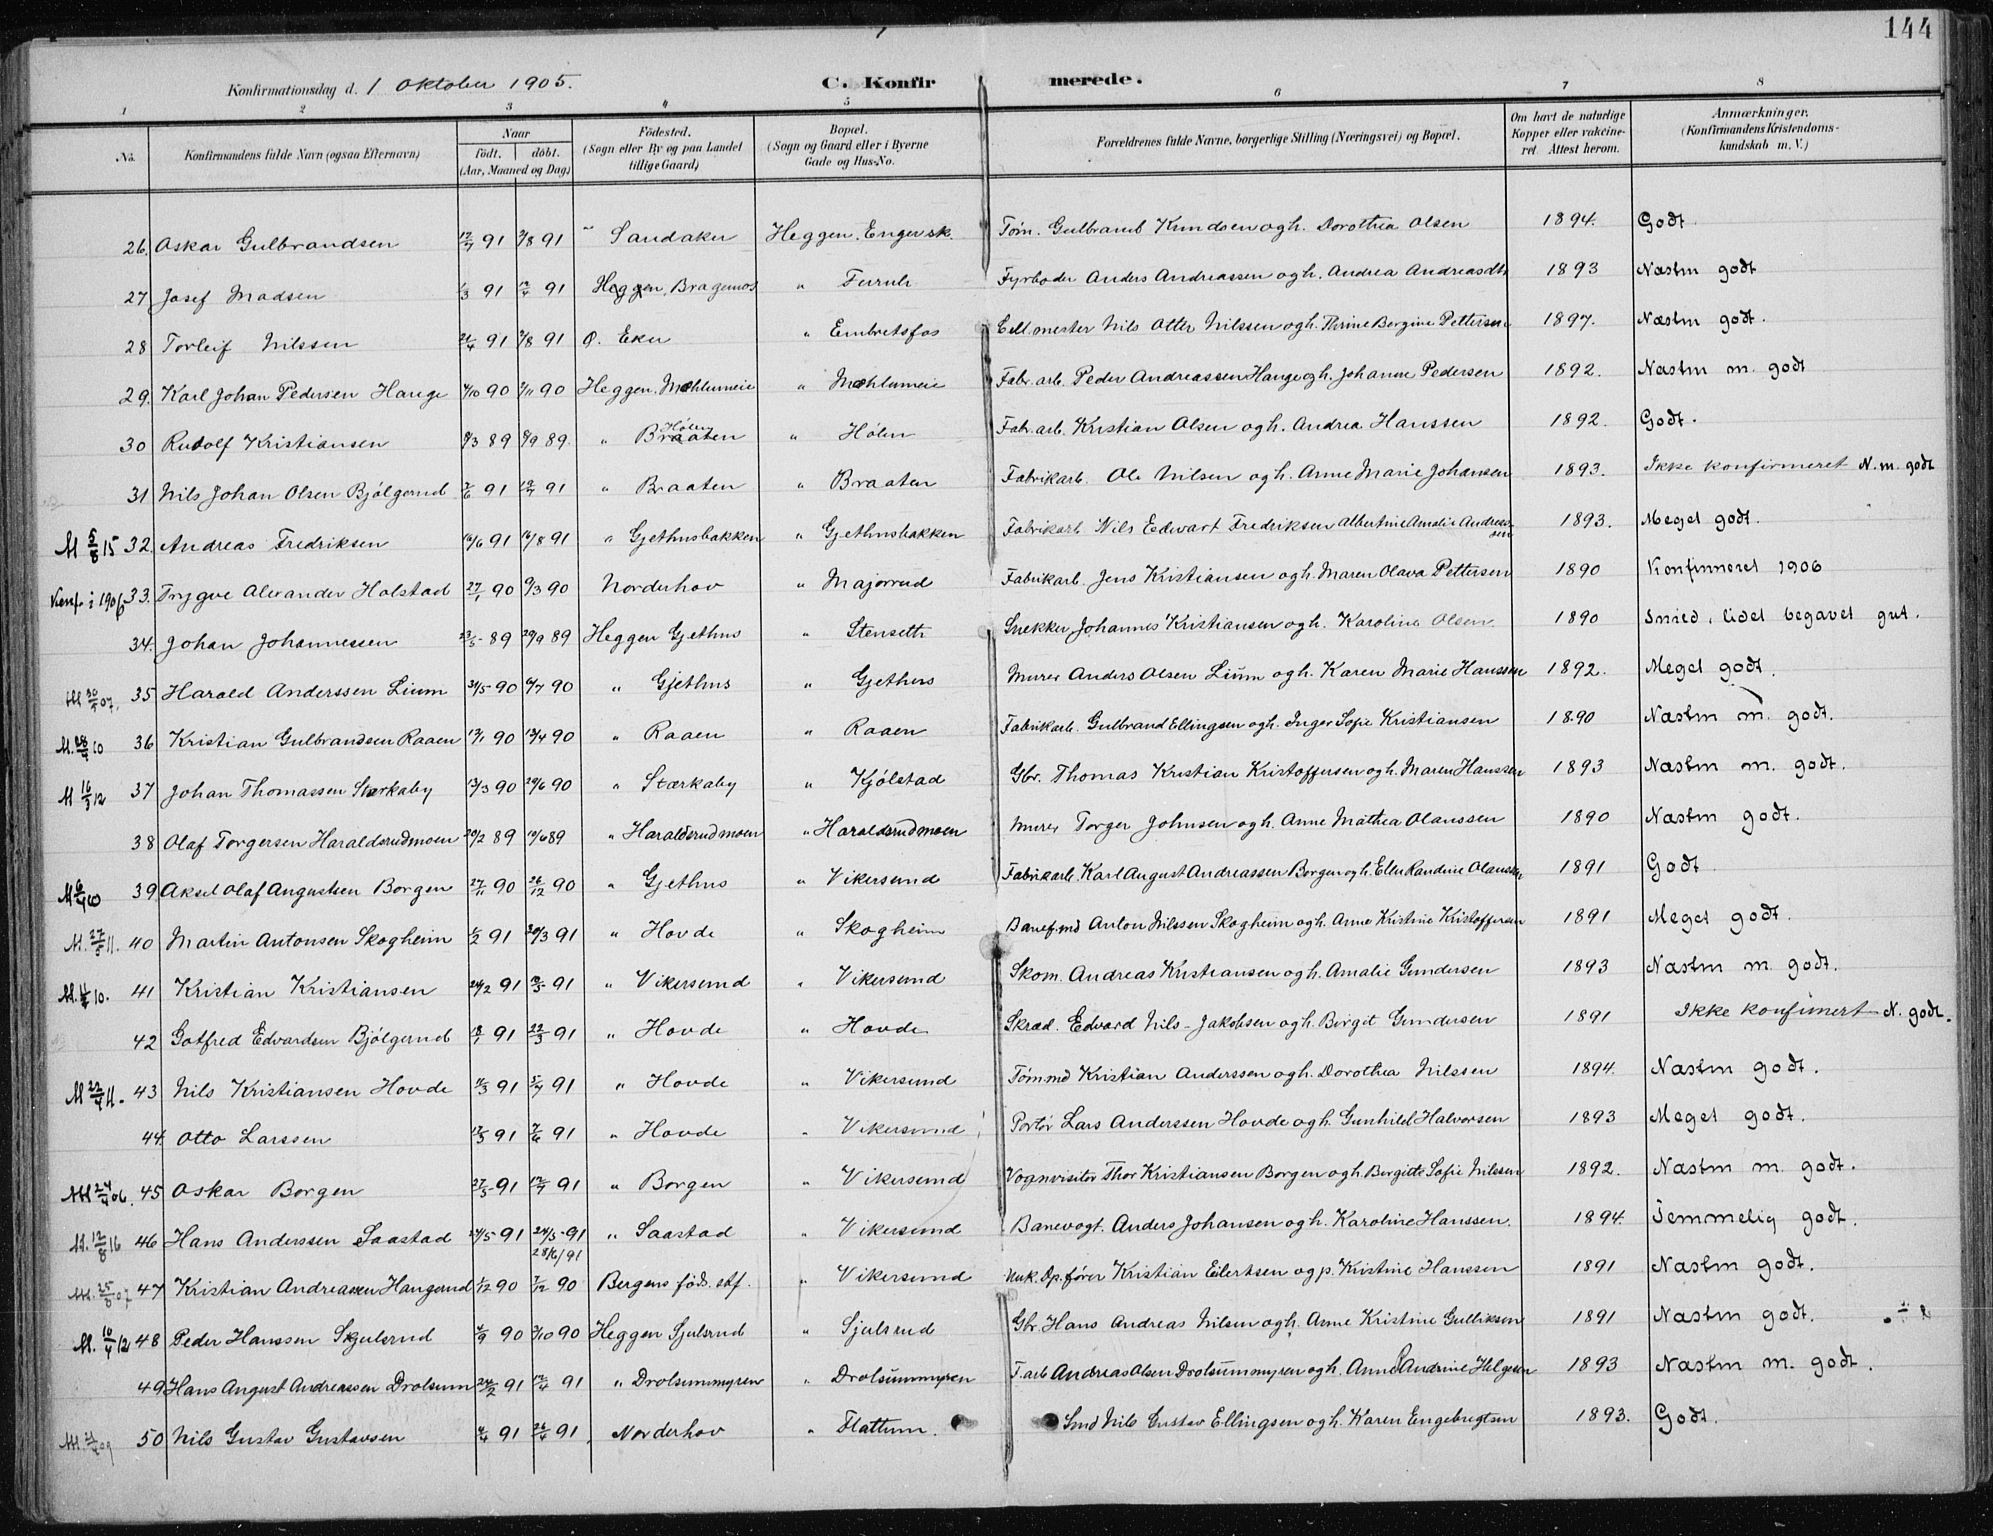 144
Konfirmationsdag d. 1 Oktober 1905.
C. Konfir merede.
1 2 3 4 5 6 7 8
No.
Konfirmandens fulde Navn (ogsaa Efternavn)
Naar
födt. döbt.
(Aar, Maaned og Dag)
Födested.
(Sogn eller By og paa Landet
tillige Gaard)
Bopæl.
(Sogn og Gaard eller i Byerne
Gade og Hus-No.
Forældrenes fulde Navne, borgerlige Stilling (Næringsvei) og Bopæl.
Om havt de naturlige
Kopper eller vakcine-
ret. Attest herom.
Anmærkninger.
(Konfirmandens Kristendoms-
kundskab m. V.)
26. Oskar Gulbrandsen 91 91 Sandaker Heggen. Engersk. Tøm. Gulbrand Knudsen og h. Dorothea Olsen 1894. Godt.
27 Josef Madsen 91 91 Heggen, Bragernos " Fyrbøder Anders Andreassen og h. Andrea Andreasdtr 1893 Næstm godt
28 Torleif Nilssen 24/4 91 91 Ø. Eker " Embretsfos Cell.mester Nils Otter Nilssen og h. Thrine Bergine Pettersen 1897. Næstm godt.
29. Karl Johan Pedersen Hauge 90 90 Heggen. Mæhlumeie " Mæhlumeie Fabr. arb. Peder Andreassen Hauge og h. Johanne Pedersen 1892. Næstm m. godt
30 Rudolf Kristiansen 89 89. " Braaten Hølen " Hølen Fabr. arb. Kristian Olsen og h. Andrea Hanssen 1892. Godt.
31 Nils Johan Olsen Bjölgerud 91 91 " Braaten " Braaten Fabrikarb. Ole Nilsen og h. Anne Marie Johansen 1893. Ikke konfirmeret N. m. godt
M 5/8 15 32. Andreas Fredriksen 91 91 " Gjethusbakken " Gjethusbakken Fabrikarb. Nils Edvart Frederiksen Albertine Amalie Andreas-
sen 1893. Meget godt.
Konf. i 1906 33. Trygve Alexander Holstad 27/1 90 9/3 90 Norderhov " Majorrud Fabrikarb. Jens Kristiansen og h. Maren Olava Pettersen 1890 Konfirmeret 1906
34. Johan Johannessen 89 29/9 89 Heggen Gjethus " Stenseth Snekker Johannes Kristiansen og h. Karoline Olsen 1890 lidet begavet gut.
07. 35 Harald Anderssen Lium 31/5 90 6/7 90 " Gjethus " Gjethus Murer Anders Olsen Lium og h. Karen Marie Hanssen 1892. Meget godt.
10 36 Kristian Gulbrandsen Raaen 90 13/4 90 " Raaen " Raaen Fabrikarb. Gulbrand Ellingsen og h. Inger Sofie Kristiansen 1890 Næstm m. godt.
M 16/3 12 37 Johan Thomassen Stærkaby 13/3 90 29/6 90 " Stærkaby " Kjölstad Gbr. Thomas Kristian Kristoffersen og h. Maren Hanssen 1893 Næstm m. godt.
38 Olaf Torgersen Haraldsrudmoen 20/2 89 10/6 89 " Haraldsrudmoen " Haraldsrudmoen Murer Torger Johnsen og h. Anne Mathea Olaussen 1890 Næstm godt.
39 Aksel Olaf Augustsen Borgen 27/11 90 26/12 90 " Gjethus " Vikersund Fabrikarb. Karl August Andreassen Borgen og h. Ellen Randine Olaussen 1891 Godt
M. 27/8 11. 40 Martin Antonsen Skogheim 1/2 91 30/3 91 " Hovde " Skogheim Banef.md Anton Nilssen Skogheim og h. Anne Kristine Kristoffersen 1891 Meget godt.
10. 41 Kristian Kristiansen 24/2 91 91 " Vikersund " Vikersund Skom. Andreas Kristiansen og h. Amalie Gundersen 1893 Næstm m. godt.
42 Gotfred Edvardsen Bjölgerud 91 22/3 91 " Hovde " Hovde Skræd. Edvard Nils-Jakobsen og h. Bergit Gundersen 1891 Ikke konfirmert N. godt.
M 11. 43 Nils Kristiansen Hovde 91 5/7 91 " Hovde " Vikersund Tømmd Kristian Anderssen og h. Dorothea Nilssen 1894. Næstm godt.
44. Otto Larssen 91 7/6 91 " Hovde " Vikersund Portör Lars Anderssen Hovde og h. Gunhild Halvorsen 1893 Meget godt.
06. 45 Oskar Borgen 91 91 " Borgen " Vikersund Vognvisitör Thor Kristiansen Borgen og h. Bergitte Sofie Nilssen 1892. Næstm m. godt.
M. 12/8 16 46 Hans Anderssen Saastad 91 24/5 91
28/6/91 " Saastad " Vikersund Banevogt. Anders Johansen og h. Karoline Hanssen. 1894. Temmelig godt.
25/8 07 47 Kristian Andreassen Haugerud 1/12 90 7/12 90 Bergens föds. stf. " Vikersund Kristian Eilertsen og p. Kristine Hanssen 1891 Næstm godt.
M. 10/4 12 48 Peder Hanssen Sjulsrud 90 90 Heggen Sjulsrud " Sjulsrud Gbr. Hans Andreas Nilsen og h. Anne Kristine Gulliksen 1891 Næstm godt.
49 Hans August Andreassen Drolsum 91 91 " Drolsummyren " Drolsummyren F. arb Andreas Olsen Drolsummyren og h. Anne Andrine Helgesen 1893 Næstm m. godt.
09 50 Nils Gustav Gustavsen 91 26/4 91 Norderhov " Flattum. Smd Nils Gustav Ellingsen og h. Karen Engebregtsen 1893. Godt.